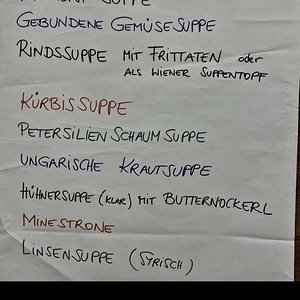 SUPPE
GEBUNDENE GEMÜSESUPPE
RINDSSUPPE MIT FRITTATEN oder
ALS WIENER SUPPENTOPF
KÜRBISSUPPE
PETERSILIENSCHAUMSUPPE
UNGARISCHE KRAUTSUPPE
HÜHNERSUPPE (KLAR) MIT BUTTERNOCKERL
MINESTRONE
LINSENSUPPE (SYRISCH)